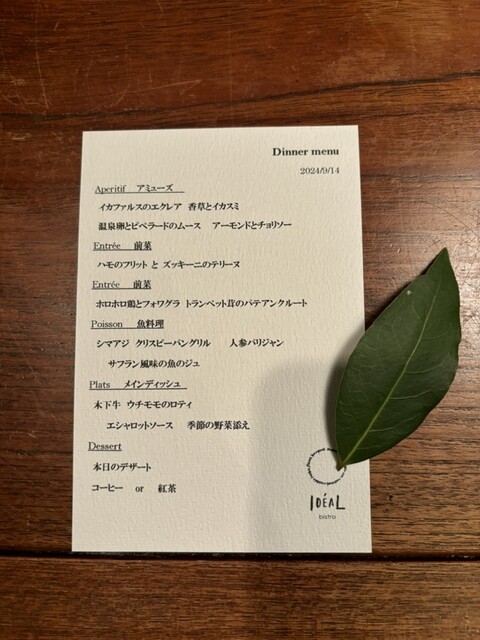 Dinner menu
2024/9/14
Aperitif アミューズ
イカファルスのエクレア 香草とイカスミ
温泉卵とピペラードのムース アーモンドとチョリソー
Entrée 前菜
ハモのフリット と ズッキーニのテリーヌ
Entrée 前菜
ホロホロ鶏とフォワグラ トランペット茸のパテアンクルート
Poisson 魚料理
シマアジ クリスピーパングリル 人参パリジャン
サフラン風味の魚のジュ
Plats メインディッシュ
木下牛 ウチモモのロティ
エシャロットソース 季節の野菜添え
Dessert
本日のデザート
コーヒー or 紅茶
IDÉAL
bistro